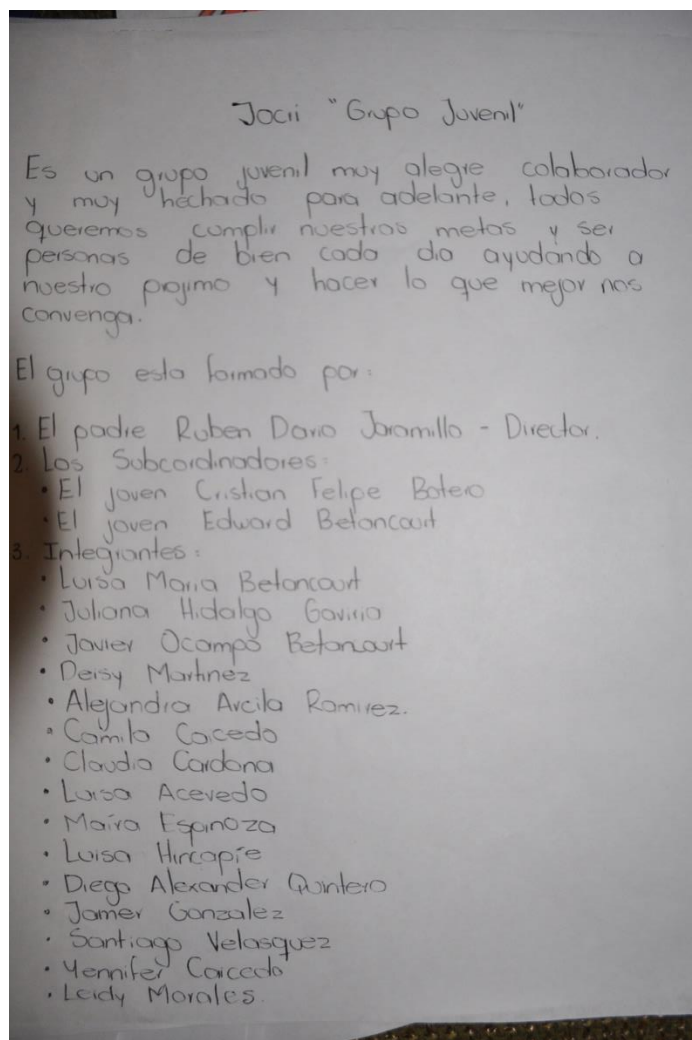 Jocii "Grupo Juvenil"
Es un grupo juvenil muy alegre colaborador
y muy hechado para adelante, todos
queremos cumplir nuestras metas y ser
personas de bien cada dia ayudando a
nuestro projimo y hacer lo que mejor nos
convenga.
El grupo esta formado por:
1. El padre Ruben Dario Jaramillo - Director.
2. Los Subcordinadores:
• El joven Cristian Felipe Botero
• El joven Edward Betancourt
3. Integrantes:
• Luisa Maria Betancourt
• Juliana Hidalgo Gaviria
• Javier Ocampo Betancourt
• Deisy Martinez
• Alejandra Arcila Ramirez.
• Camilo Caicedo
• Claudia Cardona
• Luisa Acevedo
• Maira Espinoza
• Luisa Hincapíe
• Diego Alexander Quintero
• Jamer Gonzalez
• Santiago Velasquez
• Yennifer Caicedo
• Leidy Morales.